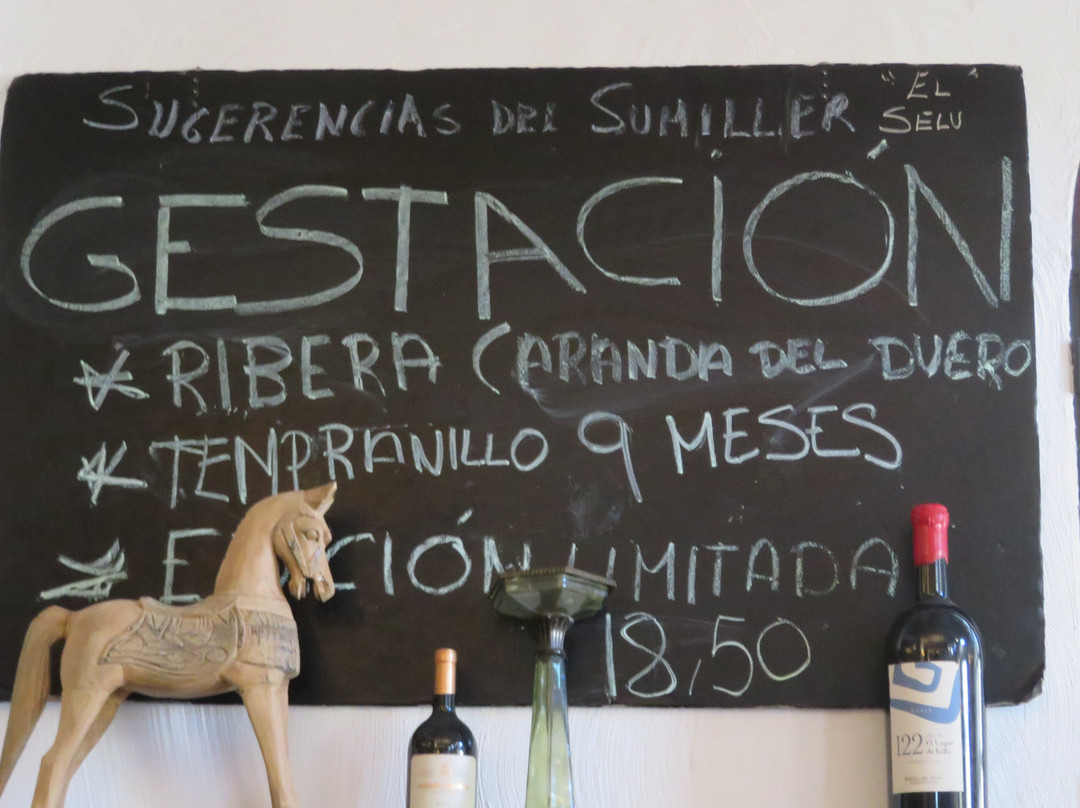 SUGERENCIAS DEL SUMILLER "EL SELU"
GESTACIÓN
* RIBERA (ARANDA DEL DUERO
* TENPRANILLO 9 MESES
LIMITADA
18,50
122